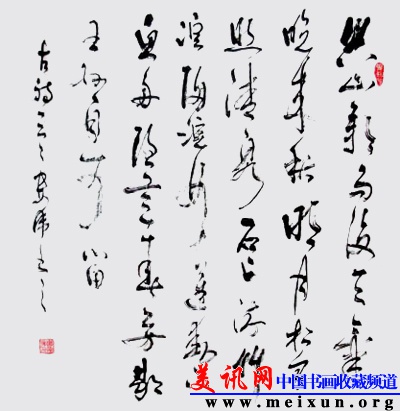 空山新雨後天氣
晚来秋明月松間
照清泉石上流竹
喧歸浣女蓮動下
漁舟隨意春芳歇
王孫自可留
古詩
美讯网 中国书画收藏频道
www.meixun.org